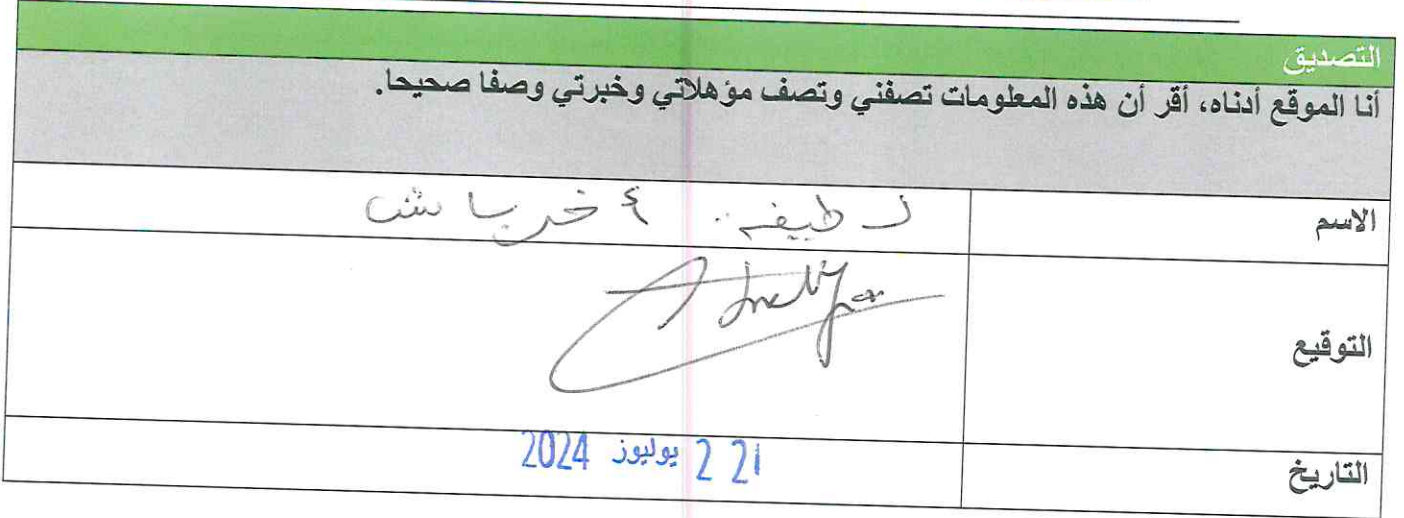 التصديق
أنا الموقع أدناه، أقر أن هذه المعلومات تصفني وتصف مؤهلاتي وخبرتي وصفا صحيحا.
الاسم لطيفة أخرباش
التوقيع
التاريخ 2 يوليوز 2024